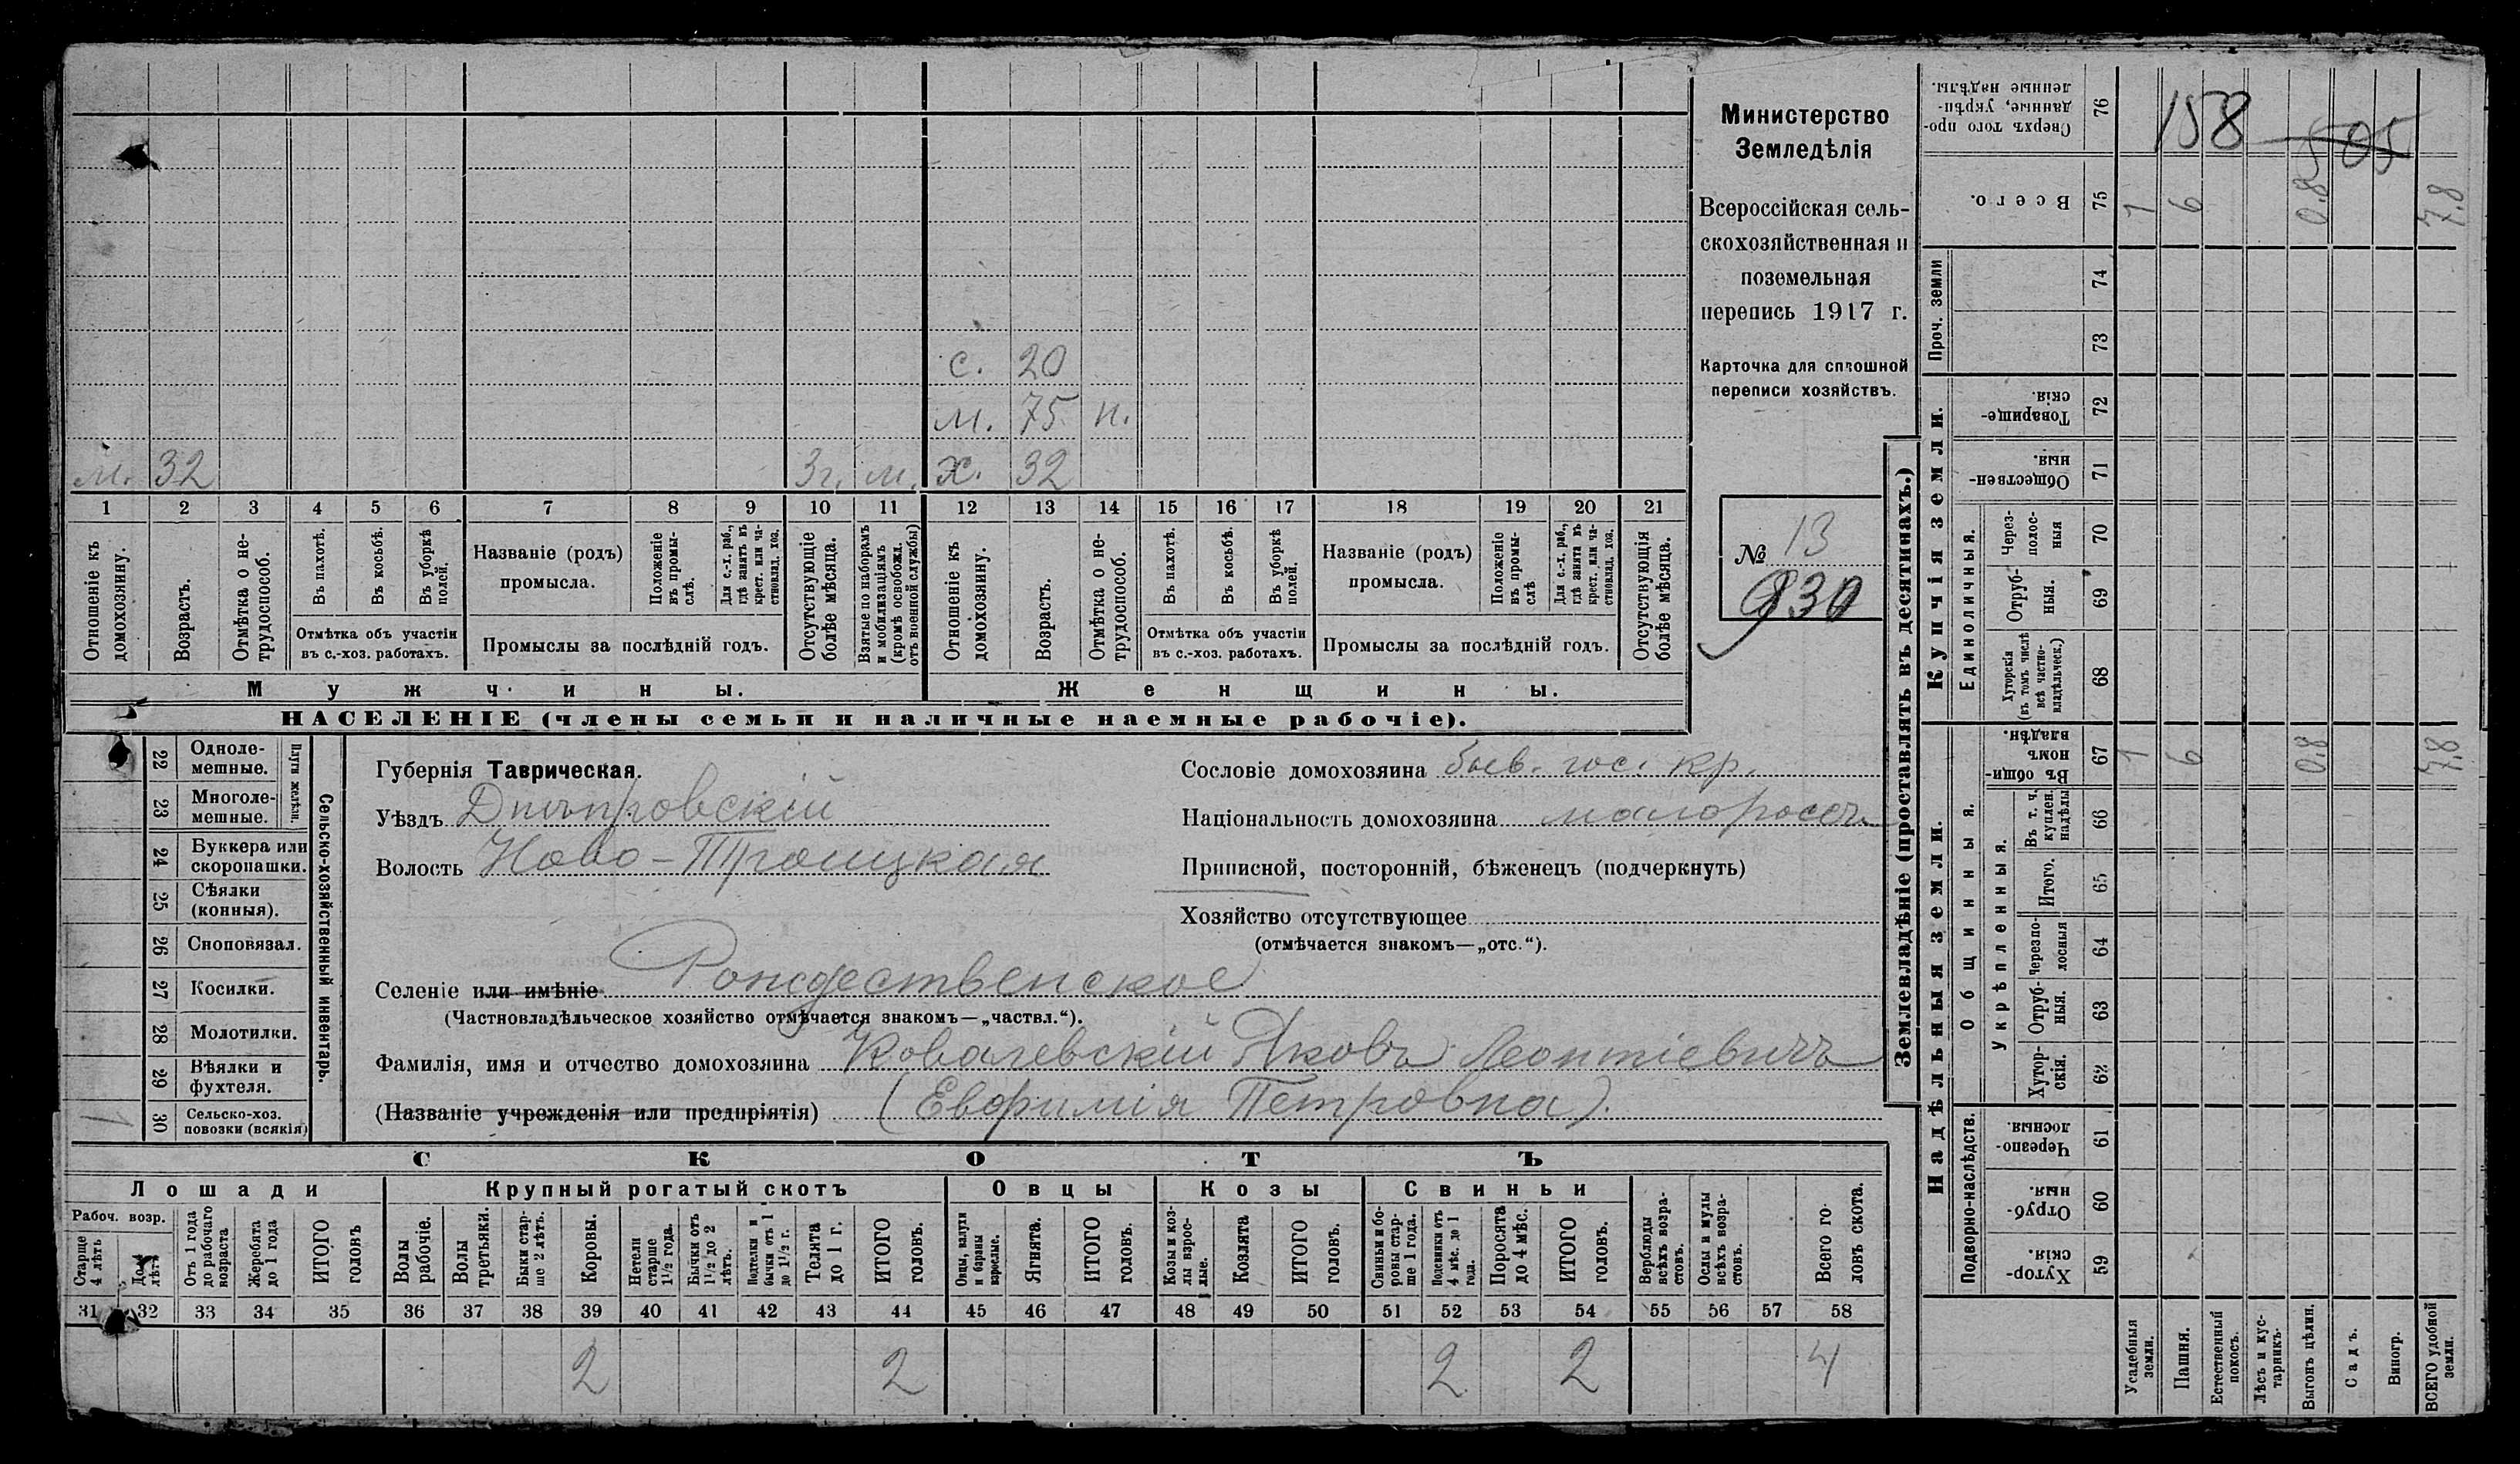 с. 20
м. 75 н.
м. 32 3г. м. х. 32
1 2 3 4 5 6 7 8 9 10 11 12 13 14 15 16 17 18 19 20 21
Отношеніе къ домохозяину.
Возрастъ.
Отмѣтка о не-трудоспособ.
Въ пахотѣ.
Въ косьбѣ.
Въ уборкѣ полей.
Отмѣтка объ участіи
въ с.-хоз. работахъ.
Названіе (родъ)
промысла.
Положеніе въ промы-слѣ.
Для с.-х. раб., гдѣ занятъ въ крест. или ча-стновлад. хоз.
Промыслы за послѣдній годъ.
Отсутствующіе болѣе мѣсяца.
Взятые по наборамъ и мобилизаціямъ (кромѣ освобожд. отъ военной службы)
Отношеніе къ домохозяину.
Возрастъ.
Отмѣтка о не-трудоспособ.
Въ пахотѣ.
Въ косьбѣ.
Въ уборкѣ полей.
Отмѣтка объ участіи
въ с.-хоз. работахъ.
Названіе (родъ)
промысла.
Положеніе въ промы-слѣ
Для с.-х. раб., гдѣ занята въ крест. или ча-стновлад. хоз.
Промыслы за послѣдній годъ.
Отсутствующія болѣе мѣсяца.
Мужчины. Женщины.
НАСЕЛЕНІЕ (члены семьи и наличные наемные рабочіе).
Министерство
Земледѣлія
Всероссійская сель-
скохозяйственная и
поземельная
перепись 1917 г.
Карточка для сплошной
переписи хозяйствъ.
№ 13
930
22 Одноле-мешные.
23 Многоле-мешные.
Плуги желѣзн.
24 Буккера или скоропашки.
25 Сѣялки (конныя).
26 Сноповязал.
27 Косилки.
28 Молотилки.
29 Вѣялки и фухтеля.
1 30 Сельско-хоз. повозки (всякія)
Сельско-хозяйственный инвентарь.
Губернія Таврическая.
Уѣздъ Днѣпровскій
Волость Ново-Троицкая
Сословіе домохозяина быв. гос. кр.
Національность домохозяина малоросс.
Приписной, посторонній, бѣженецъ (подчеркнуть)
Хозяйство отсутствующее
(отмѣчается знакомъ—„отс.“).
Селеніе или имѣніе Рождественское
(Частновладѣльческое хозяйство отмѣчается знакомъ—„частвл.“).
Фамилія, имя и отчество домохозяина Ковалевскій Яковъ Леонтіевичъ
(Названіе учрежденія или предпріятія) (Евфимія Петровна).
СКОТЪ
Лошади Крупный рогатый скотъ Овцы Козы Свиньи
Рабоч. возр.
Старше 4 лѣтъ
До 4 лѣтъ
Отъ 1 года до рабочаго возраста
Жеребята до 1 года
ИТОГО головъ
Волы рабочіе.
Волы третьяки.
Быки стар-ше 2 лѣтъ.
Коровы.
Нетели старше 1½ года.
Бычки отъ 1½ до 2 лѣтъ.
Подтелки и бычки отъ 1 до 1½ г.
Телята до 1 г.
ИТОГО головъ.
Овцы, валухи и бараны взрослые.
Ягнята.
ИТОГО головъ.
Козы и коз-лы взрос-лые.
Козлята
ИТОГО головъ.
Свиньи и бо-ровы стар-ше 1 года.
Подсвинки отъ 4 мѣс. до 1 года.
Поросята до 4 мѣс.
ИТОГО головъ.
Верблюды всѣхъ возра-стовъ.
Ослы и мулы всѣхъ возра-стовъ.
Всего го-ловъ скота.
31 32 33 34 35 36 37 38 39 40 41 42 43 44 45 46 47 48 49 50 51 52 53 54 55 56 57 58
2 2 2 2 4
Землевладѣніе (проставлять въ десятинахъ.)
Сверхъ того про-данные, укрѣп-ленные надѣлы. 76
158 505
Всего. 75 1 6 0.8 7.8
Проч. земли 74 73
Купчія земли.
Товарище-скія. 72
Обществен-ныя. 71
Единоличныя.
Через-полос-ныя 70
Отруб-ныя. 69
Хуторскія (въ томъ числѣ всѣ частно-владѣльческ.) 68
Надѣльныя земли.
Общинныя.
Въ общин-номъ владѣн. 67 1 6 0.8 7.8
Укрѣпленныя.
Въ т. ч. куплен. надѣлы 66
Итого. 65
Черезпо-лосныя 64
Отруб-ныя. 63
Хутор-скія. 62
Подворно-наслѣдств.
Черезпо-лосныя. 61
Отруб-ныя. 60
Хутор-скія. 59
Усадебныя земли.
Пашня.
Естественный покосъ.
Лѣсъ и кус-тарникъ.
Выгонъ цѣлин.
Садъ.
Виногр.
ВСЕГО удобной земли.